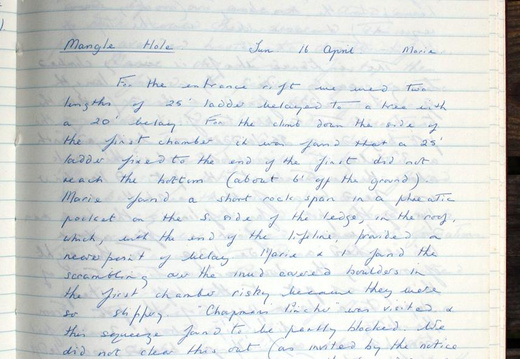 Mangle Hole Sun 16 April Marie
For the entrance rift we used two
lengths of 25' ladder belayed to a tree with
a 20' belay. For the climb down the side of
the first chamber it was found that a 25'
ladder fixed to the end of the first did not
reach the bottom (about 6' off the ground)
Marie found a short rock span in a phreatic
pocket on the S. side of the ledge, in the roof,
which, with the end of the lifeline, provided a
nearer point of belay. Marie & I found the
scrambling over the mud covered boulders in
the first chamber risky because they were
so slippy. "Chapmans Pincher" was visited &
this squeeze found to be partly blocked. We
did not clear this out (as invited by the notice